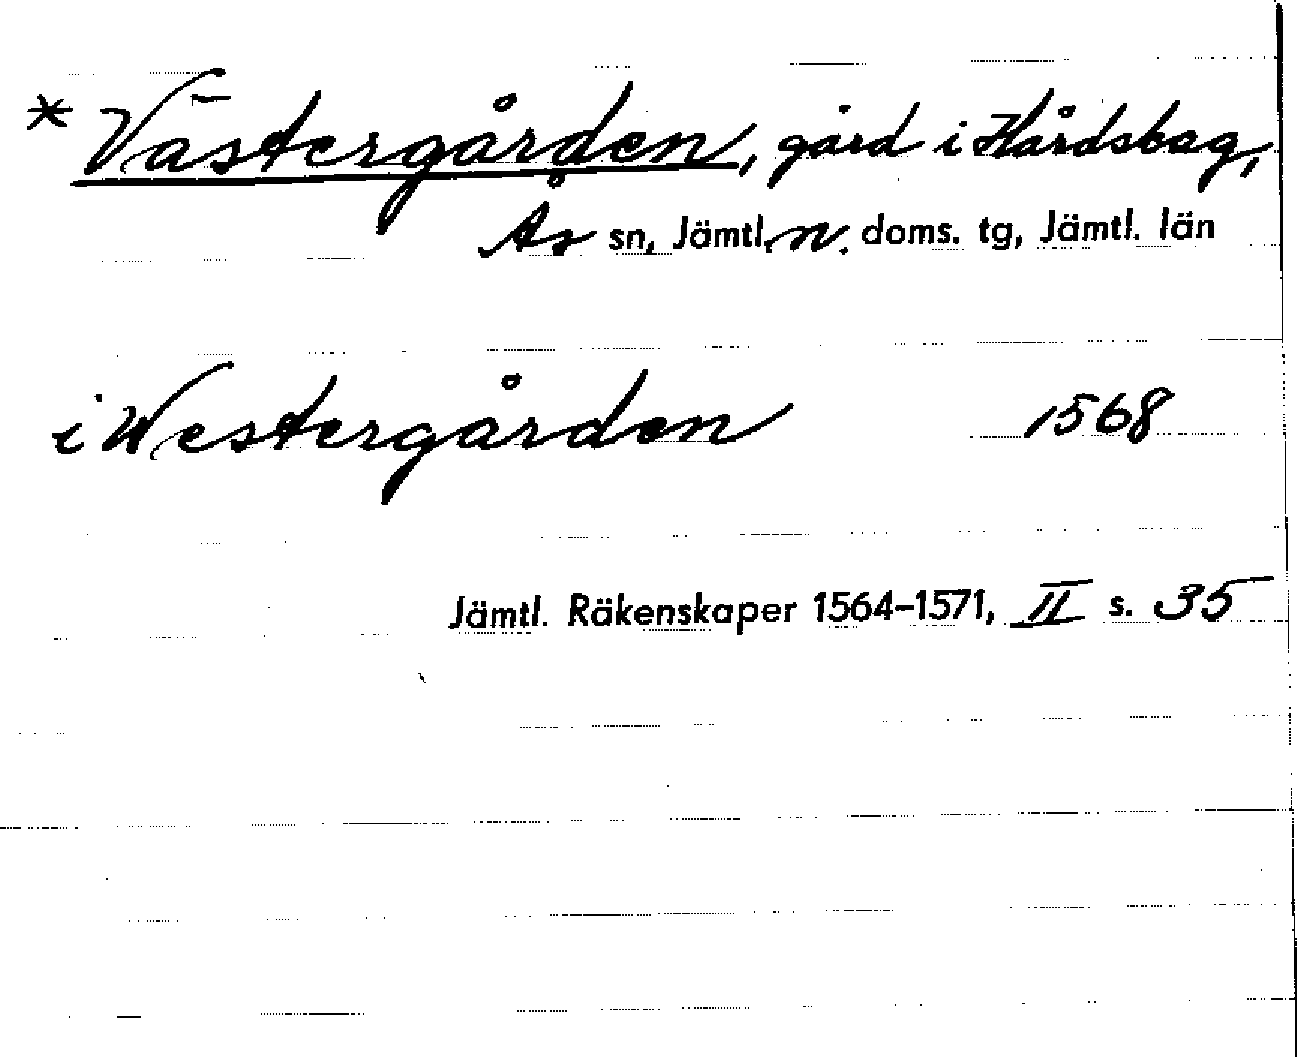 * Västergården, gård i Hårdsbag,
Ås sn, Jämtl. n. doms. tg, Jämtl. län
i Westergården 1568
Jämtl. Räkenskaper 1564-1571, II s. 35